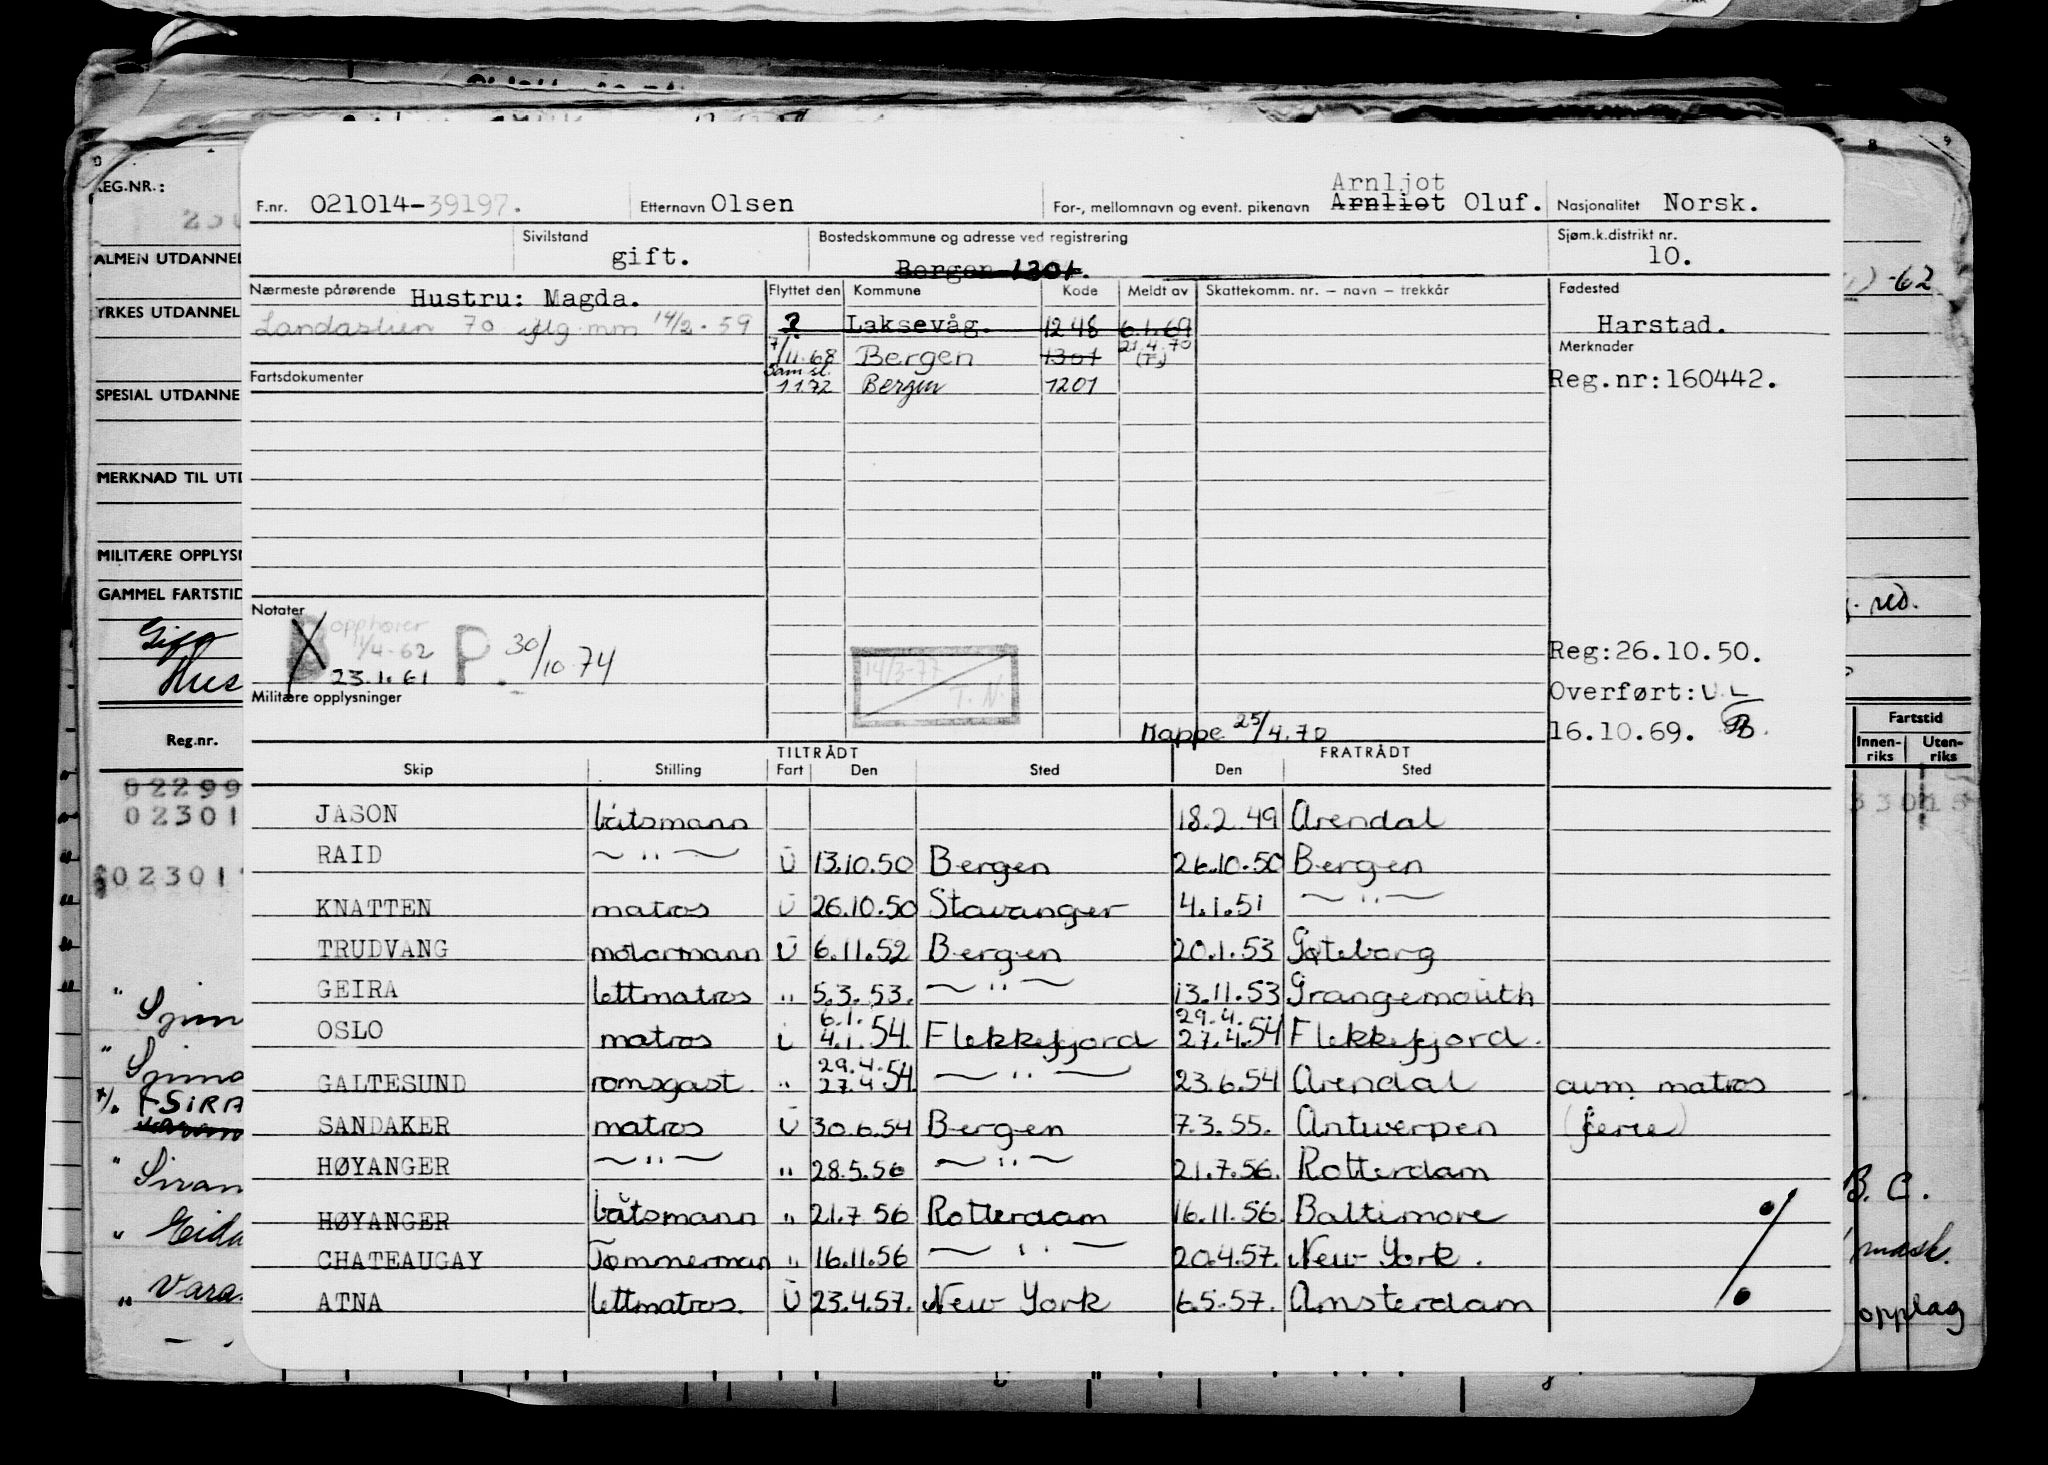 REG.NR.:
F.nr. 021014-39197. Etternavn Olsen For-, mellomnavn og event. pikenavn Arnliot Oluf. Nasjonalitet Norsk.
Arnljot
ALMEN UTDANNEL
Sivilstand gift. Bostedskommune og adresse ved registrering Bergen 1301. Sjøm.k.distrikt nr. 10.
-62
YRKES UTDANNEL
Nærmeste pårørende Hustru: Magda. Flyttet den Kommune Kode Meldt av Skattekomm. nr. – navn – trekkår Fødested
Landaslien 70 iflg mm 14/2-59 ? Laksevåg. 1248 6.1.69 Harstad.
7/11.68 Bergen 1301 21.4.70 (T.) Merknader
Fartsdokumenter Sam.sl. 1.1.72 Bergen 1201 Reg.nr:160442.
SPESIAL UTDANNE
MERKNAD TIL UTD
MILITÆRE OPPLYSN
GAMMEL FARTSTID
Gift
Hus
Notater
B opphører 11/4-62
23.1.61 P. 30/10-74
14/3-77 T.N.
Reg:26.10.50.
Overført:U.L
16.10.69.
Militære opplysninger
Mappe 25/4.70
Reg.nr.
Fartstid
Innen-riks Uten-riks
TILTRÅDT FRATRÅDT
Skip Stilling Fart Den Sted Den Sted
02299
02301
JASON båtsmann 18.2.49 Arendal
RAID ~ " ~ U 13.10.50 Bergen 26.10.50 Bergen
KNATTEN matros U 26.10.50 Stavanger 4.1.51 ~ " ~
TRUDVANG motormann U 6.11.52 Bergen 20.1.53 Gøteborg
GEIRA lettmatros " 5.3.53. ~ " ~ 13.11.53 Grangemouth
OSLO matros i 6.1. 4.1.54. Flekkefjord 29.4. 27.4.54 Flekkefjord.
GALTESUND romsgast. " 29.4. 27.4.54. ~ " ~ 23.6.54 Arendal avm. matros
SANDAKER matros U 30.6.54 Bergen 7.3.55. Antwerpen (ferie)
HØYANGER ~ " ~ " 28.5.56 ~ " ~ 21.7.56. Rotterdam
HØYANGER båtsmann " 21.7.56 Rotterdam 16.11.56. Baltimore
CHATEAUGAY Tømmerman " 16.11.56 ~ " ~ 20.4.57. New York.
ATNA lettmatros. U 23.4.57. New York 6.5.57. Amsterdam
SIRA
Siran
Vara
B. C.
mask.
opplag